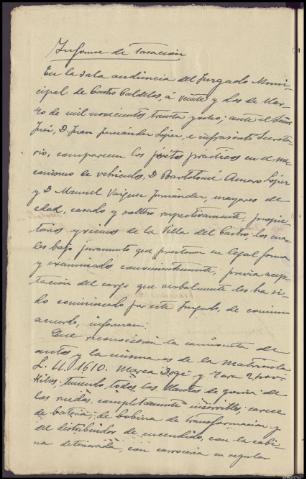 Informe de Tasación
En la sala audiencia del Juzgado Muni-
cipal de Castro Caldelas, a veinte y dos de Mar-
zo de mil novecientos treinta y ocho, ante el Señor
Juez, D. Juan Fernández López, e infrascrito Secreta-
rio, comparecen los peritos practicos en el me-
canismo de vehiculos, D. Bartolomé Amaro López
y D. Manuel Vázquez Fernández, mayores de
edad, casado y soltero respectivamente, propie-
tarios y vecinos de la Villa del Castro, los cua-
les bajo juramento que prestaron en legal forma
y examinados convenientemente, previa acep-
tación del cargo que verbalmente les ha si-
do comunicado por este Juzgado, de común
acuerdo, informan:
Que reconocida la camioneta de
autos, y la misma es de la matricula
L. U. 1610. Marca Dogi y
kilos, teniendo todas las llantas de goma de
las ruedas completamente inservibles, carece
de batería, de bobina de transformación y
del distribuidor de encendido, con la cabi-
na deteriorada, con carrocería en regular